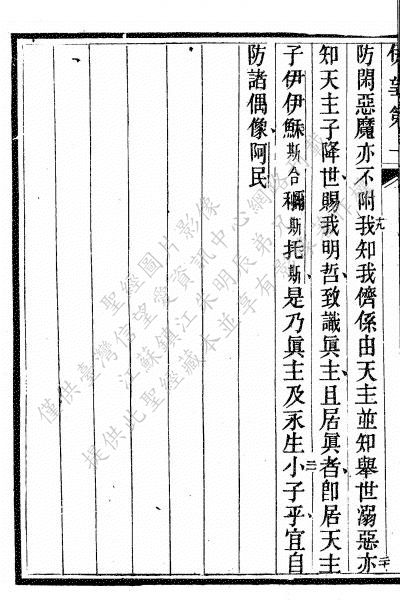 伊望第一
防閑惡魔亦不附我十九知我儕係由天主並知舉世溺惡亦二十
知天主子降世賜我明哲致識眞主且居眞者卽居天主
子伊伊穌斯合稱彌斯托斯是乃眞主及永生二一小子乎宜自
防諸偶像阿民
聖經圖片影像
僅供臺灣信望愛資訊中心網路刊載
江蘇鎮江朱明辰弟兄
提供此聖經藏本並享有